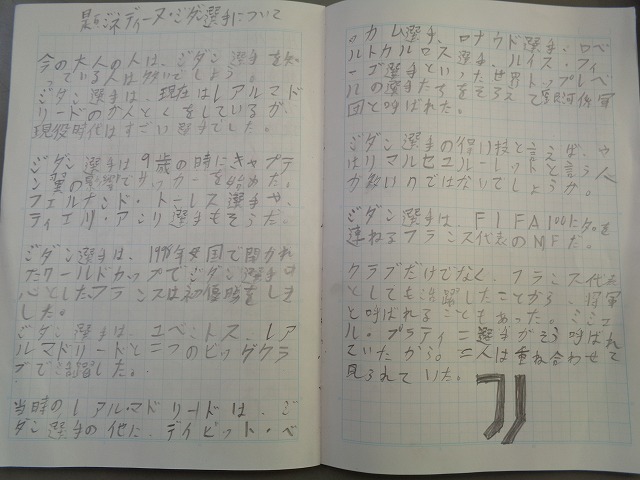 ジネディーヌ・ジダン選手について
今の大人の人は、ジダン選手を知
ている人は多いでしょう。
ジダン選手は、現在はレアルマド
リードのかんとくをしているが、
現役時代はすごい選手でした。
ジダン選手は9歳の時にキャプテ
ン翼の影響でサッカーを始めた。
フェルナンド・トーレス選手や、
ティエリ・アンリ選手もそうだ。
ジダン選手は、1998年 国で開かれ
たワールドカップでジダン選手中
心としたフランスは初優勝をしま
した。
ジダン選手は、ユベントス、レア
ルマドリードと二つのビッグクラ
ブで活躍した。
当時のレアル・マドリードは、ジ
ダン選手の他に、デイビット・ベ
ッカム選手、ロナウド選手、ロベ
ルトカルロス選手、ルイス・フィ
ーゴ選手といった世界トップレベ
ルの選手たちをそろえて銀河係軍
団と呼ばれた。
ジダン選手の得い技と言えば、や
はりマルセユルーレットと言う人
が多いのではないでしょうか。
ジダン選手は、FIFA100に名を
連ねるフランス代表のMFだ。
クラブだけでなく、フランス代表
としても活躍したことから、将軍
と呼ばれることもあった。ミシェ
ル・プラティニ選手がそう呼ばれ
ていたから。二人は重ね合わせて
見られていた。